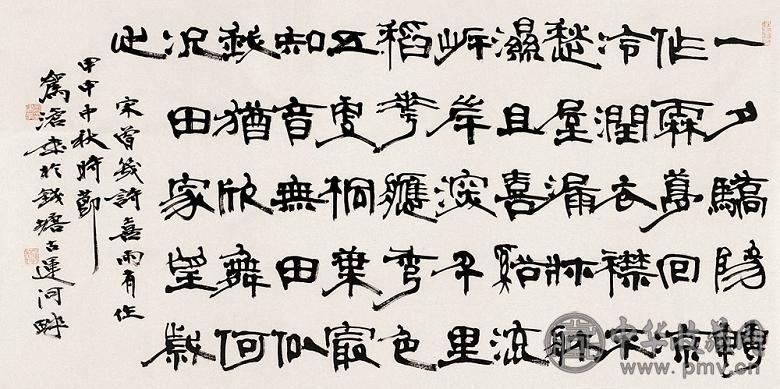 一夕驕陽轉
作霖夢回涼
冷潤衣襟不
愁屋漏牀牀
濕且喜谿流
岸岸深千里
稻花應秀色
五更桐葉最
知音無田似
我猶欣舞何
況田家望歲
心
宋曾幾詩喜雨有作
甲申中秋時節
於錢塘古運河畔
中华收藏网
www.pmv.cn